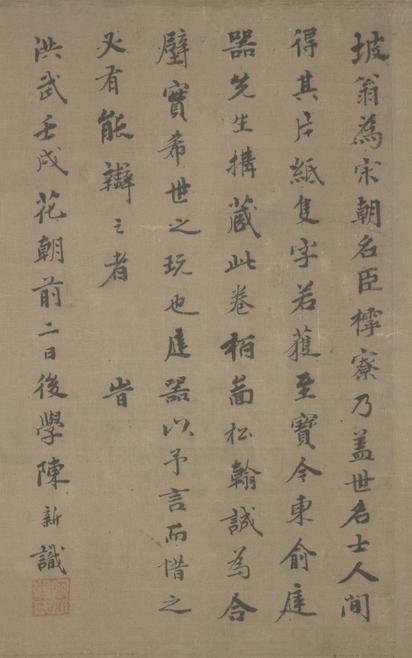 坡翁為宋朝名臣樗寮乃蓋世名士人間
得其片紙隻字若獲至寶今東俞庭
器先生搆藏此卷栢啚松翰誠為合
璧實希世之玩也庭器以予言而惜之
必有能辯之者 旹
洪武壬戌花朝前二日後學陳新識